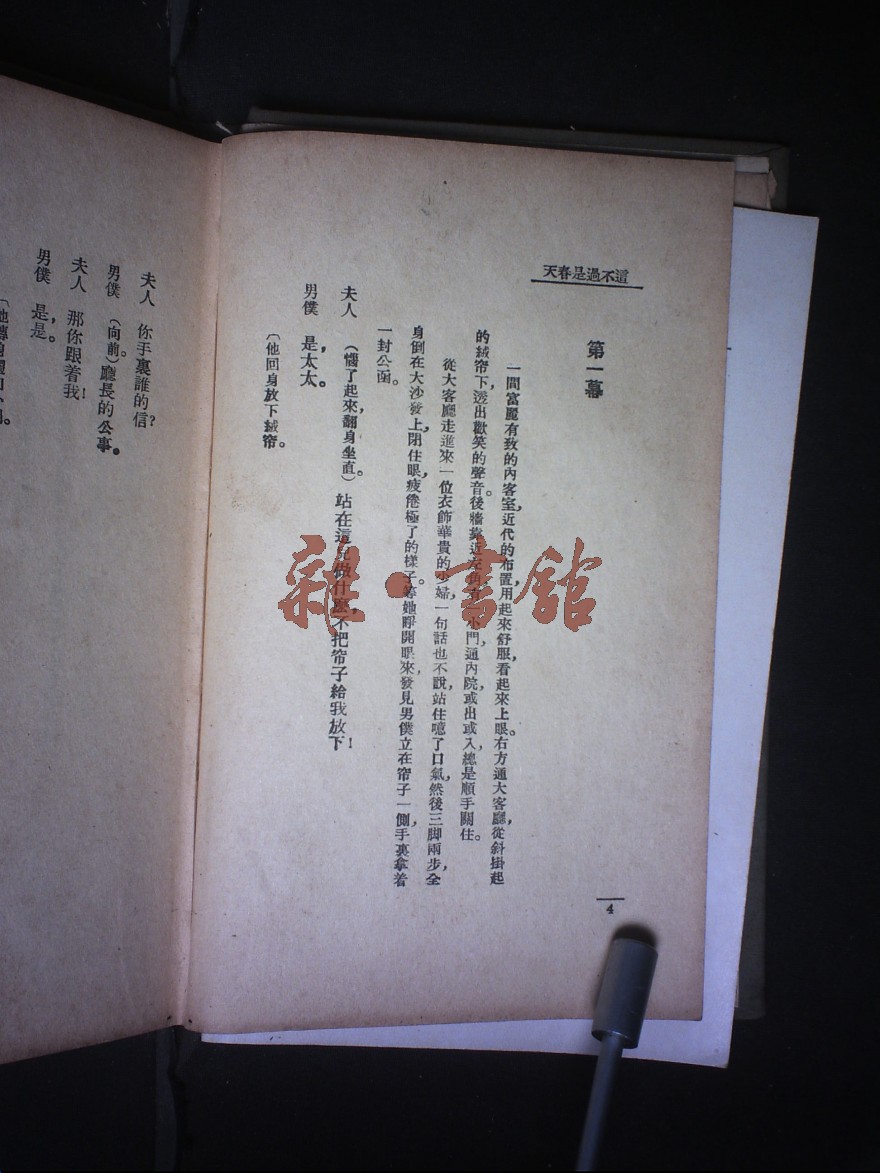 這不過是春天
第一幕
一間富麗有致的內客室，近代的布置，用起來舒服，看起來上眼。右方通大客廳，從斜掛起
的絨帘下，透出歡笑的聲音。後牆靠近左角有一小門，通內院，或出或入，總是順手關住。
從大客廳走進來一位衣飾華貴的少婦，一句話也不說，站住噫了口氣，然後三脚兩步，全
身倒在大沙發上，閉住眼，疲倦極了的樣子。等她睜開眼來，發見男僕立在帘子一側，手裏拿着
一封公函。
夫人　（惱了起來，翻身坐直。）站在這兒做什麼，不把帘子給我放下！
男僕　是，太太。
〔他回身放下絨帘。
4
夫人　你手裏誰的信？
男僕　（向前）廳長的公事。
夫人　那你跟着我！
男僕　是，是。
雜·書館